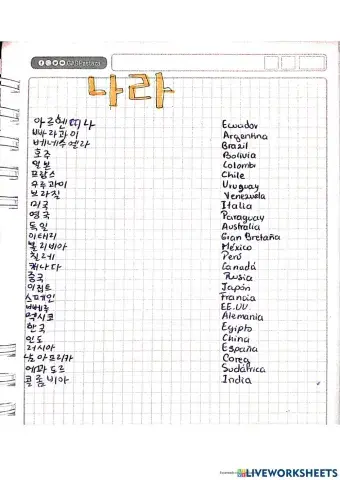 나라
아르헨띠나 Ecuador
빠라과이 Argentina
베네수엘라 Brazil
호주 Bolivia
일본 Colombi
프랑스 Chile
우루과이 Uruguay
브라질 Venezuela
미국 Italia
영국 Paraguay
독일 Australia
이태리 Gran Bretaña
볼리비아 México
칠레 Perú
캐나다 Canadá
중국 Rusia
이집트 Japón
스페인 Francia
뻬루 EE.UU.
멕시코 Alemania
한국 Egipto
인도 China
러시아 España
남아프리카 Corea
에콰도르 Sudáfrica
콜롬비아 India
LIVEWORKSHEETS